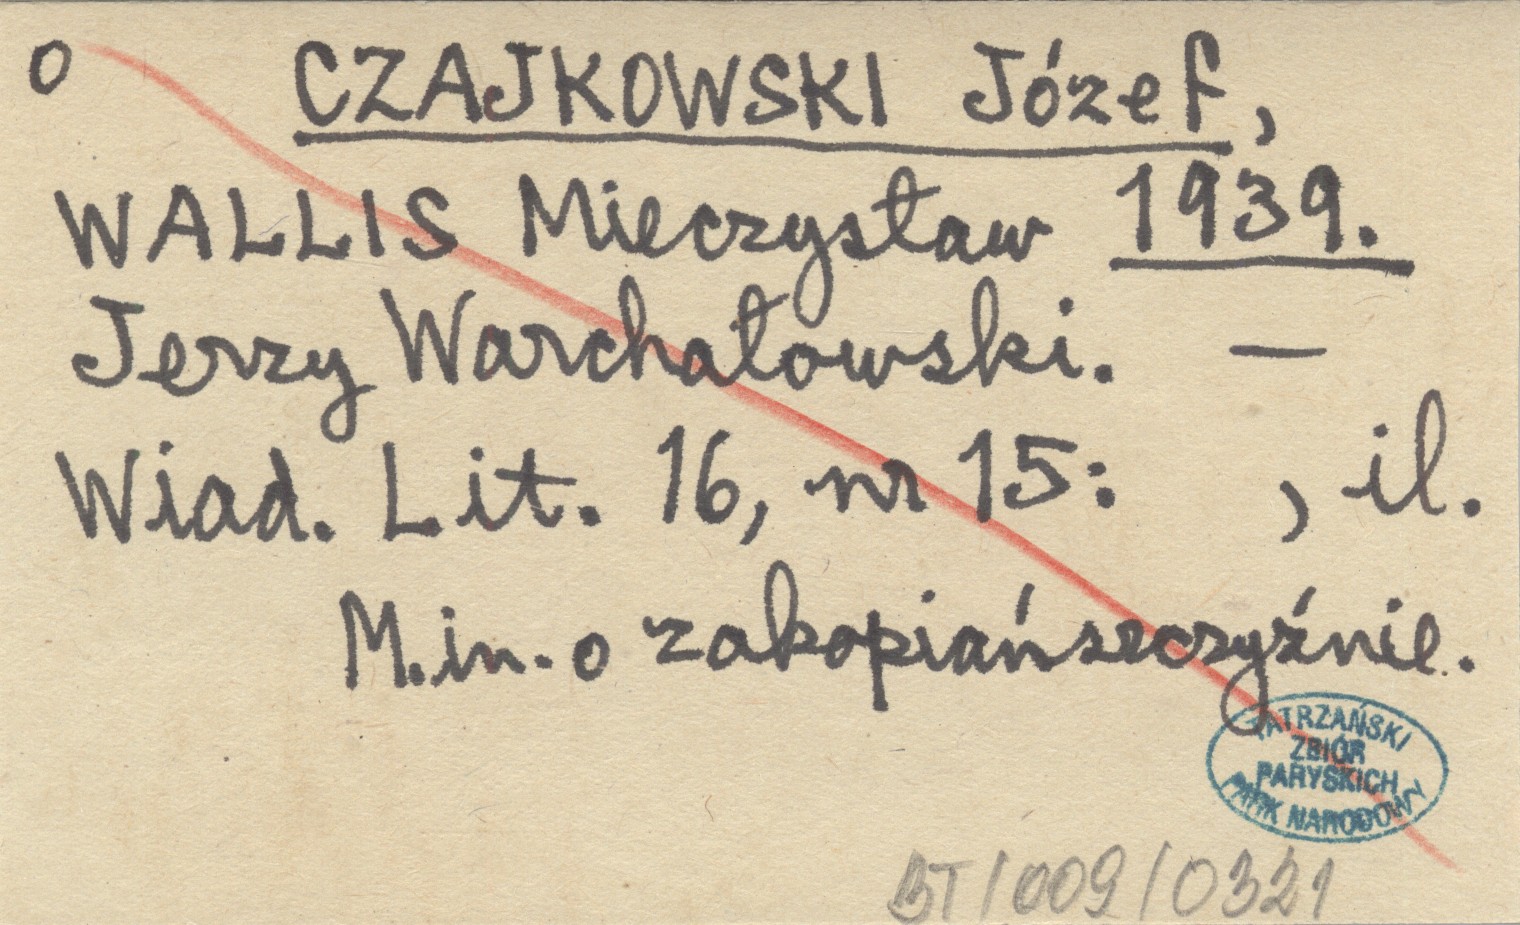 o CZAJKOWSKI Józef,
WALLIS Mieczysław 1939.
Jerzy Warchałowski. —
Wiad. Lit. 16, nr 15: , il.
M.in. o zakopiańszczyźnie.
TATRZAŃSKI
ZBIÓR
PARYSKICH
PARK NARODOWY
BT/009/0321